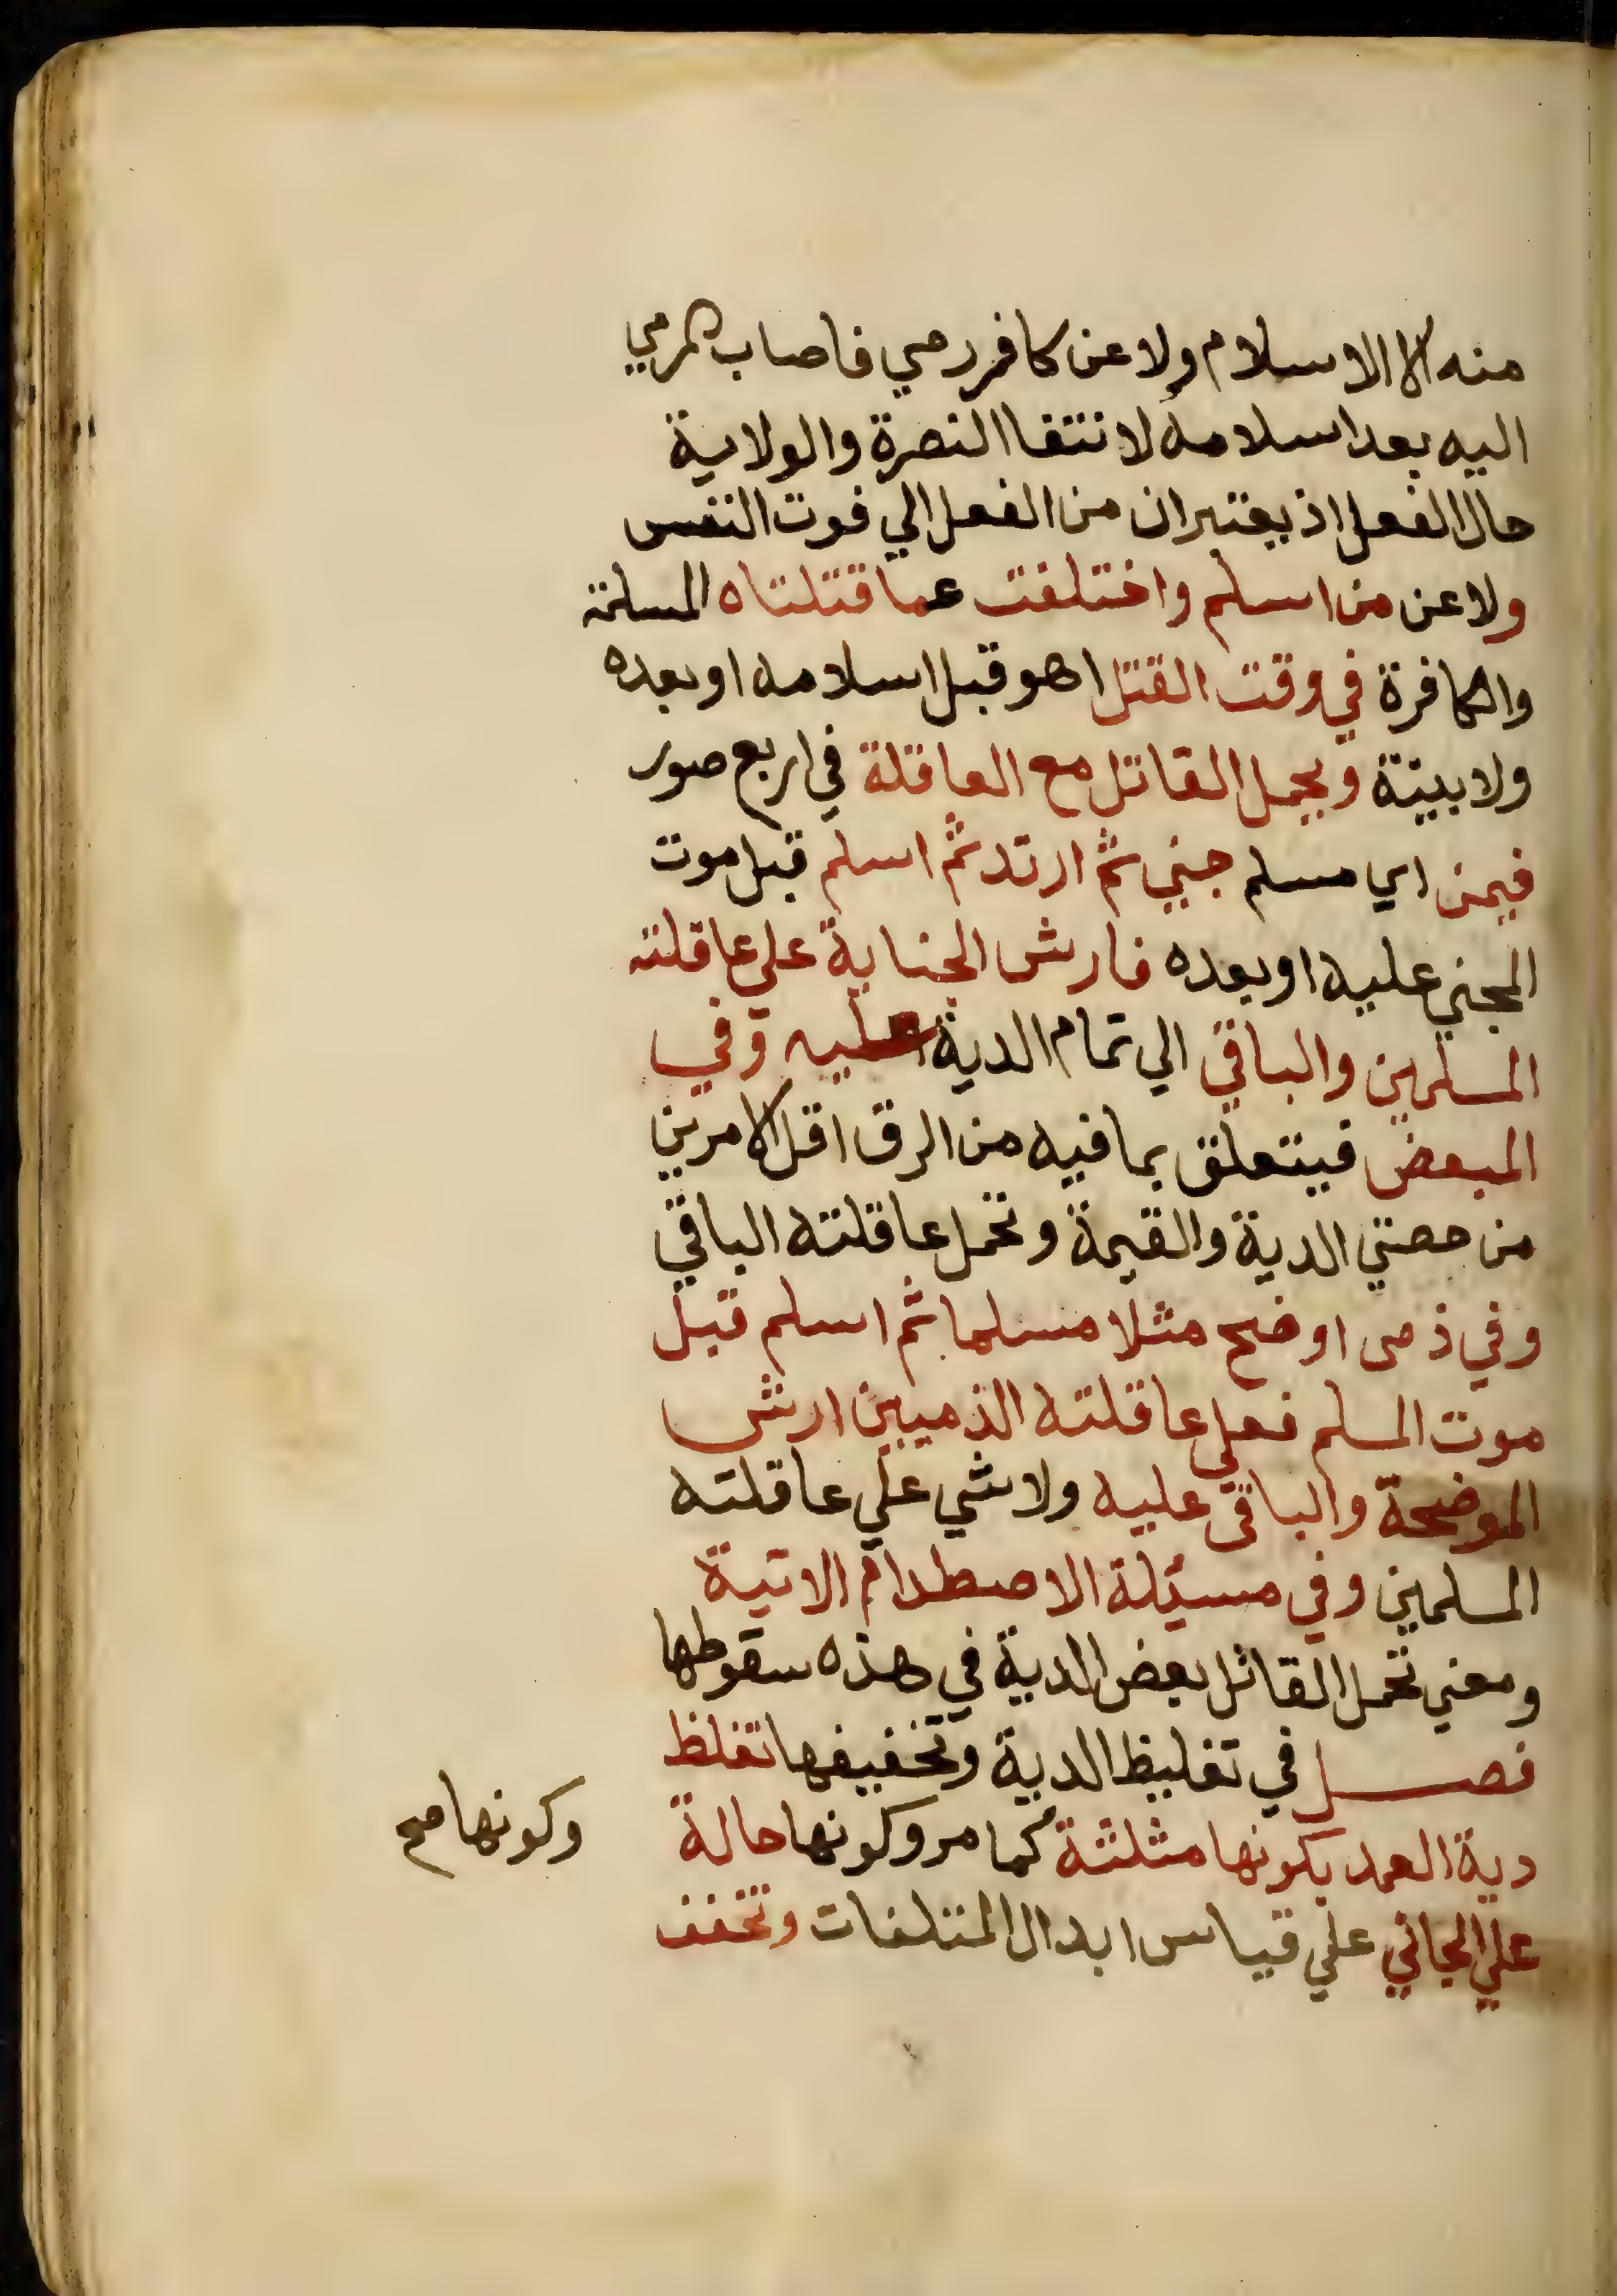 منه الا الاسلام ولا عن كافر رمي فاصاب المرمي
اليه بعد اسلامه لانتفا النصرة والولاية
حال الفعل اذ يعتبران من الفعل الي فوت النفس
ولا عن من اسلم واختلفت عاقلتاه المسلمة
والكافرة في وقت القتل اهو قبل اسلامه او بعده
ولا بينة ويحمل القاتل مع العاقلة في اربع صور
فيمن اي مسلم جني ثم ارتد ثم اسلم قبل موت
المجني عليه او بعده فارش الجناية علي عاقلته
المسلمين والباقي الي تمام الدية عليه وفي
المبعض فيتعلق بما فيه من الرق اقل الامرين
من حصتي الدية والقيمة وتحمل عاقلته الباقي
وفي ذمى اوضح مثلا مسلما ثم اسلم قبل
موت المسلم فعلي عاقلته الذميين ارش
الموضحة والباقى عليه ولا شي علي عاقلته
المسلمين وفي مسئلة الاصطدام الاتية
ومعني تحمل القاتل بعض الدية في هذه سقوطها
فصل في تغليظ الدية وتخفيفها تغلظ
دية العمد بكونها مثلثة كما مر وكونها حالة
وكونها صح
علي الجاني علي قياس ابدال المتلفات وتخفف